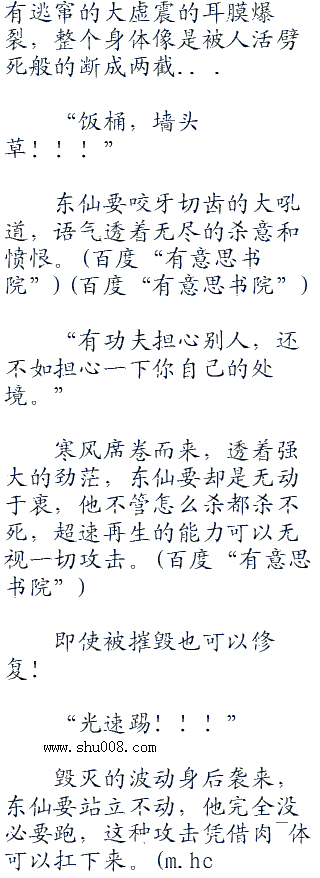 有逃窜的大虚震的耳膜爆
裂，整个身体像是被人活劈
死般的断成两截...
“饭桶，墙头
草！！！”
东仙要咬牙切齿的大吼
道，语气透着无尽的杀意和
愤恨。(百度“有意思书
院”)(百度“有意思书院”)
“有功夫担心别人，还
不如担心一下你自己的处
境。”
寒风席卷而来，透着强
大的劲茫，东仙要却是无动
于衷，他不管怎么杀都杀不
死，超速再生的能力可以无
视一切攻击。(百度“有意思
书院”)
即使被摧毁也可以修
复！
“光速踢！！！”
www.shu008.com
毁灭的波动身后袭来，
东仙要站立不动，他完全没
必要跑，这种攻击凭借肉¯体
可以扛下来。(m.hc